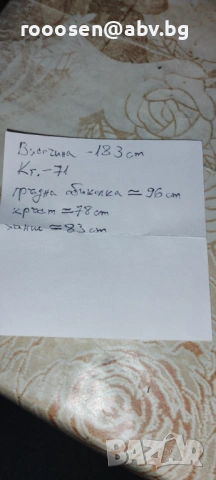 rooosen@abv.bg
Височина - 183 cm
Кг. - 71
гръдна обиколка ≈ 96 cm
кръст ≈ 78 cm
ханш ≈ 83 cm
BAZAR